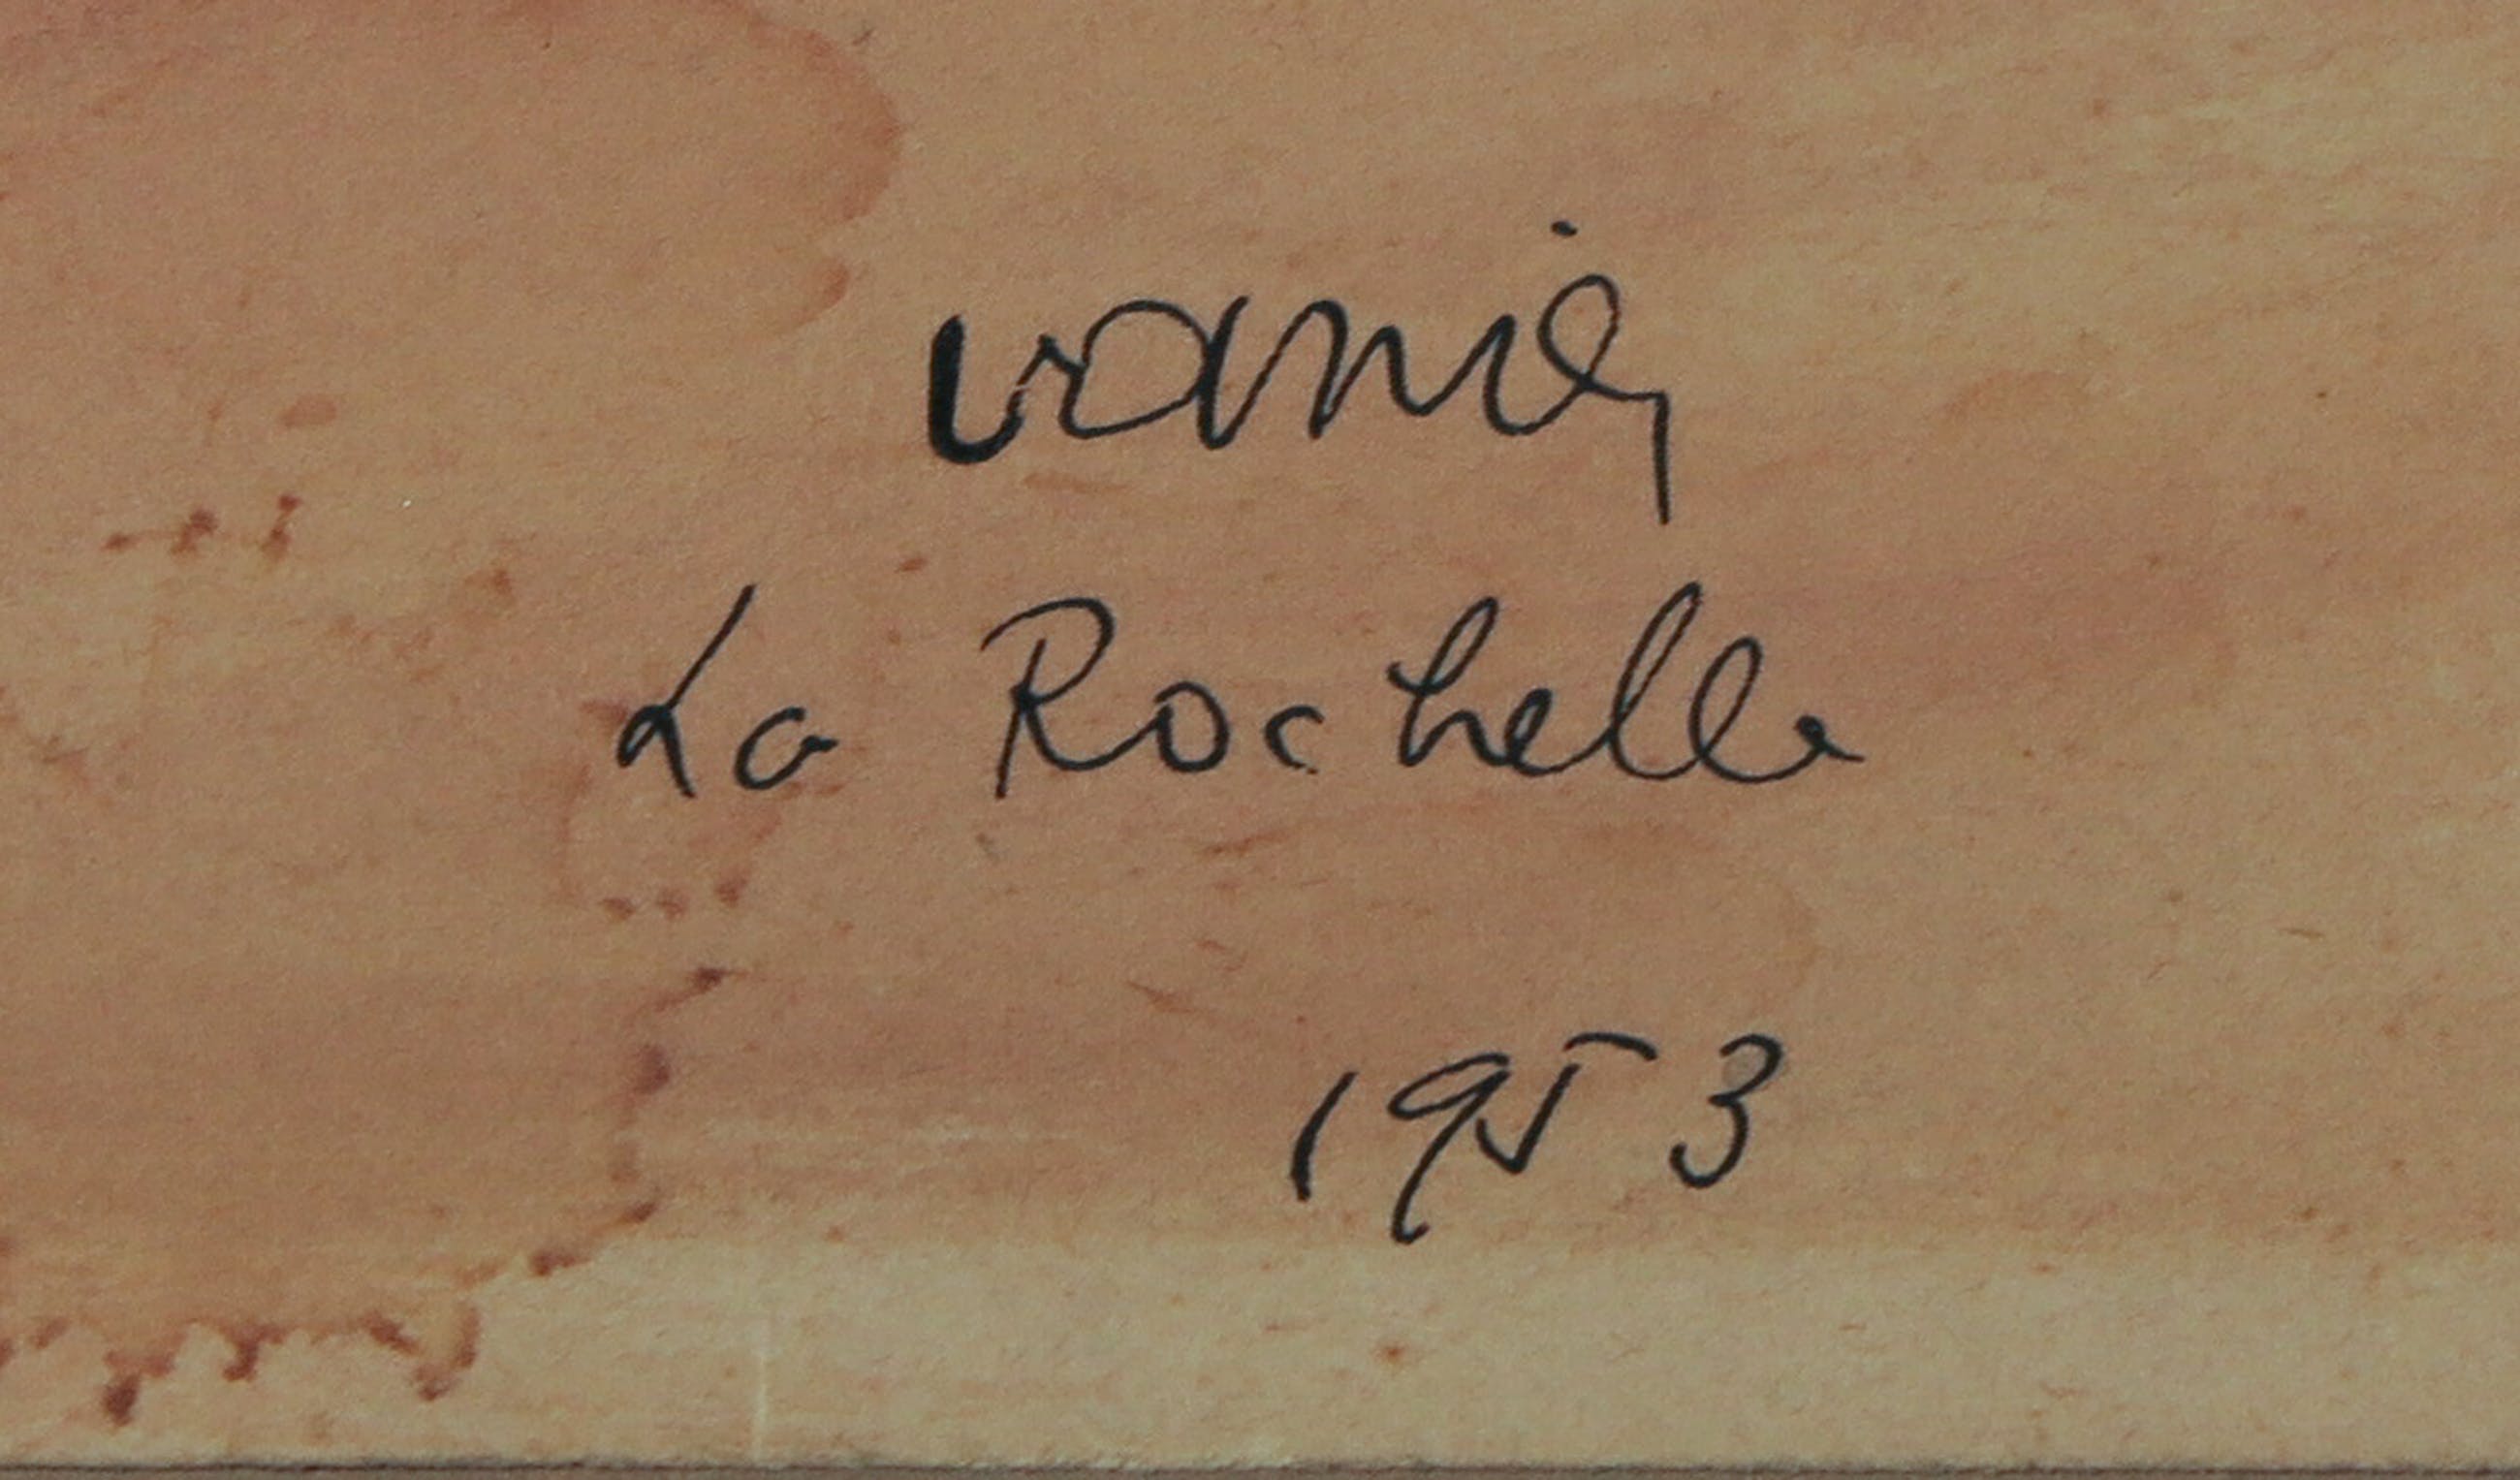 vanier
La Rochelle
1953